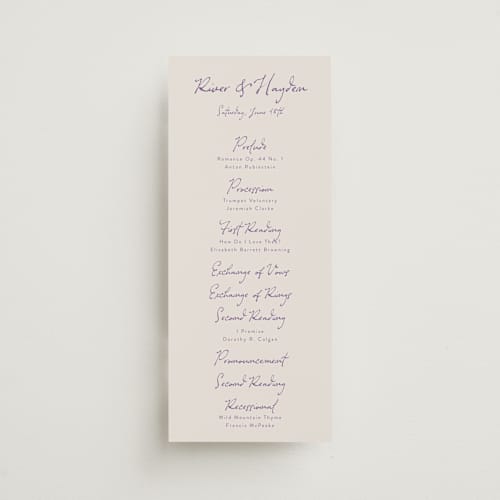 River & Hayden
Saturday, June
Prelude
Romance Op. 44 No. 1
Anton Rubinstein
Procession
Trumpet Voluntary
Jeremiah Clarke
First Reading
How Do I Love
Elizabeth Barrett Browning
Exchange of Vows
Exchange of Rings
Second Reading
I Promise
Dorothy R. Colgan
Pronouncement
Second Reading
Recessional
Wild Mountain Thyme
Francis McPeake